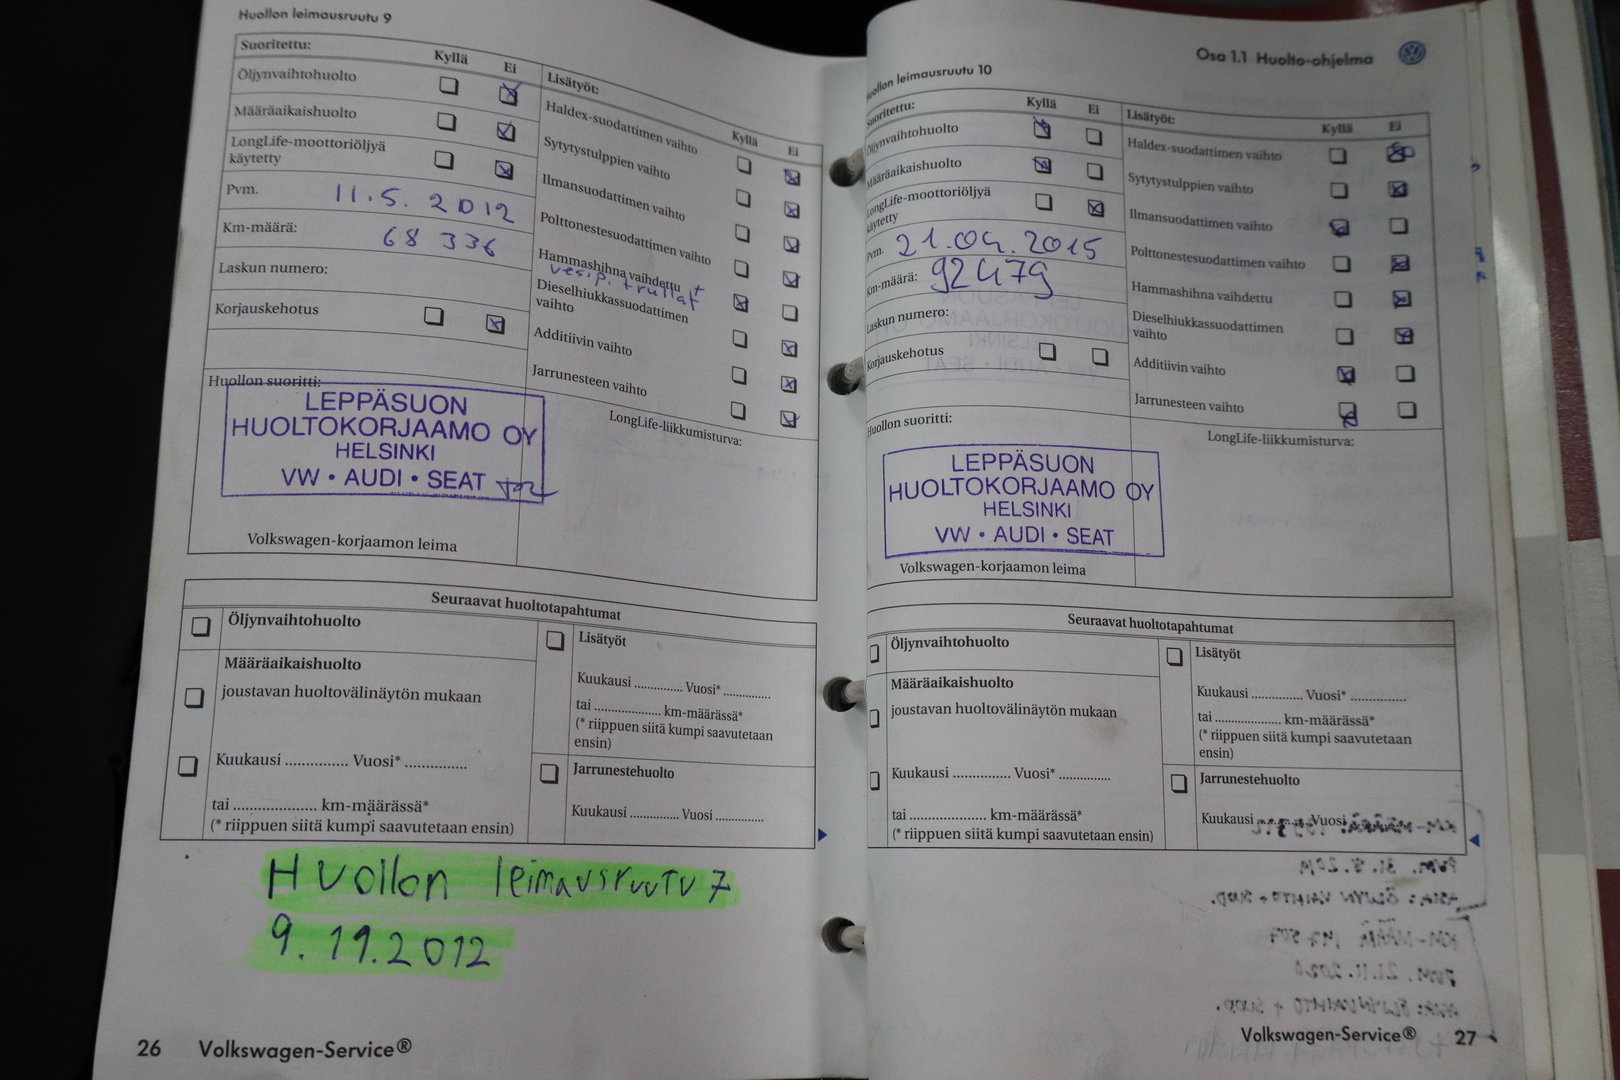 Huollon leimausruutu 9
Suoritettu:
Kyllä Ei
Öljynvaihtohuolto
Määräaikaishuolto
LongLife-moottoriöljyä
käytetty
Pvm. 11.5. 2012
Km-määrä: 68 336
Laskun numero:
Korjauskehotus
Huollon suoritti:
LEPPÄSUON
HUOLTOKORJAAMO OY
HELSINKI
VW • AUDI • SEAT
Volkswagen-korjaamon leima
Lisätyöt:
Kyllä Ei
Haldex-suodattimen vaihto
Sytytystulppien vaihto
Ilmansuodattimen vaihto
Polttonestesuodattimen vaihto
Hammashihna vaihdettu +
vesip. + rullat
Dieselhiukkassuodattimen
vaihto
Additiivin vaihto
Jarrunesteen vaihto
LongLife-liikkumisturva:
Seuraavat huoltotapahtumat
Öljynvaihtohuolto
Määräaikaishuolto
joustavan huoltovälinäytön mukaan
Kuukausi ............... Vuosi* ...............
tai .................... km-määrässä*
(* riippuen siitä kumpi saavutetaan ensin)
Lisätyöt
Kuukausi .............. Vuosi* ..............
tai .................... km-määrässä*
(* riippuen siitä kumpi saavutetaan
ensin)
Jarrunestehuolto
Kuukausi .............. Vuosi ..............
Huollon leimausruutu 7
9.11.2012
26 Volkswagen-Service®
Osa 1.1 Huolto-ohjelma
Huollon leimausruutu 10
Suoritettu:
Kyllä Ei
Öljynvaihtohuolto
Määräaikaishuolto
LongLife-moottoriöljyä
käytetty
Pvm. 21.04.2015
Km-määrä: 92479
Laskun numero:
Korjauskehotus
Huollon suoritti:
LEPPÄSUON
HUOLTOKORJAAMO OY
HELSINKI
VW • AUDI • SEAT
Volkswagen-korjaamon leima
Lisätyöt:
Kyllä Ei
Haldex-suodattimen vaihto
Sytytystulppien vaihto
Ilmansuodattimen vaihto
Polttonestesuodattimen vaihto
Hammashihna vaihdettu
Dieselhiukkassuodattimen
vaihto
Additiivin vaihto
Jarrunesteen vaihto
LongLife-liikkumisturva:
Seuraavat huoltotapahtumat
Öljynvaihtohuolto
Määräaikaishuolto
joustavan huoltovälinäytön mukaan
Kuukausi .............. Vuosi* .............
tai ..................... km-määrässä*
(* riippuen siitä kumpi saavutetaan ensin)
Lisätyöt
Kuukausi .............. Vuosi* ..............
tai .................... km-määrässä*
(* riippuen siitä kumpi saavutetaan
ensin)
Jarrunestehuolto
Kuukausi .............. Vuosi
Volkswagen-Service® 27